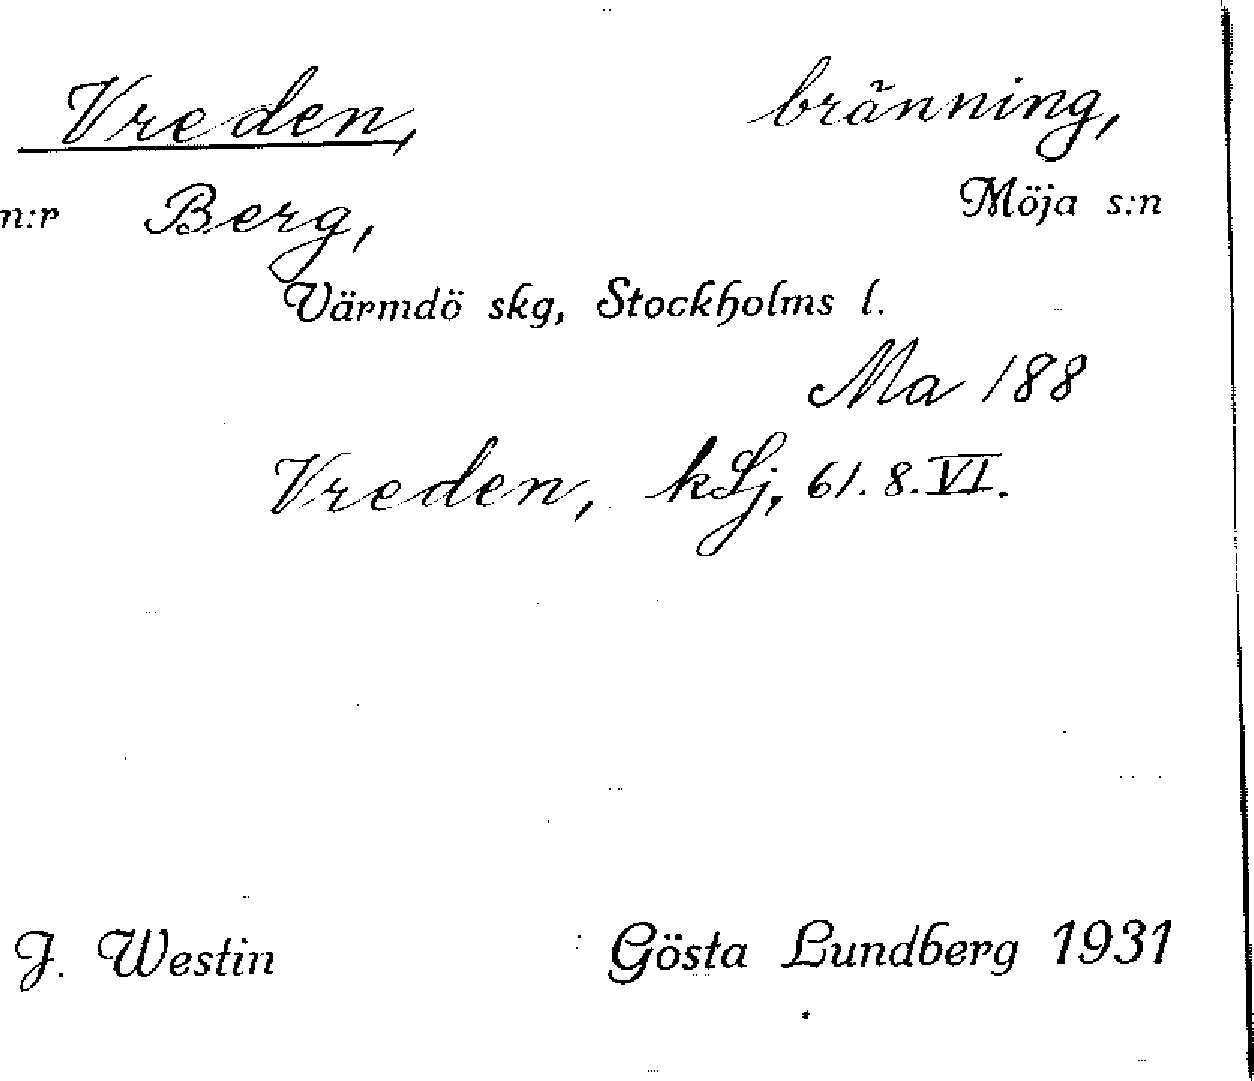 Vreden, bränning,
n:r Berg, Möja s:n
Värmdö skg, Stockholms l.
Ma 188
Vreden, kLj, 61. 8. VI.
J. Westin Gösta Lundberg 1931